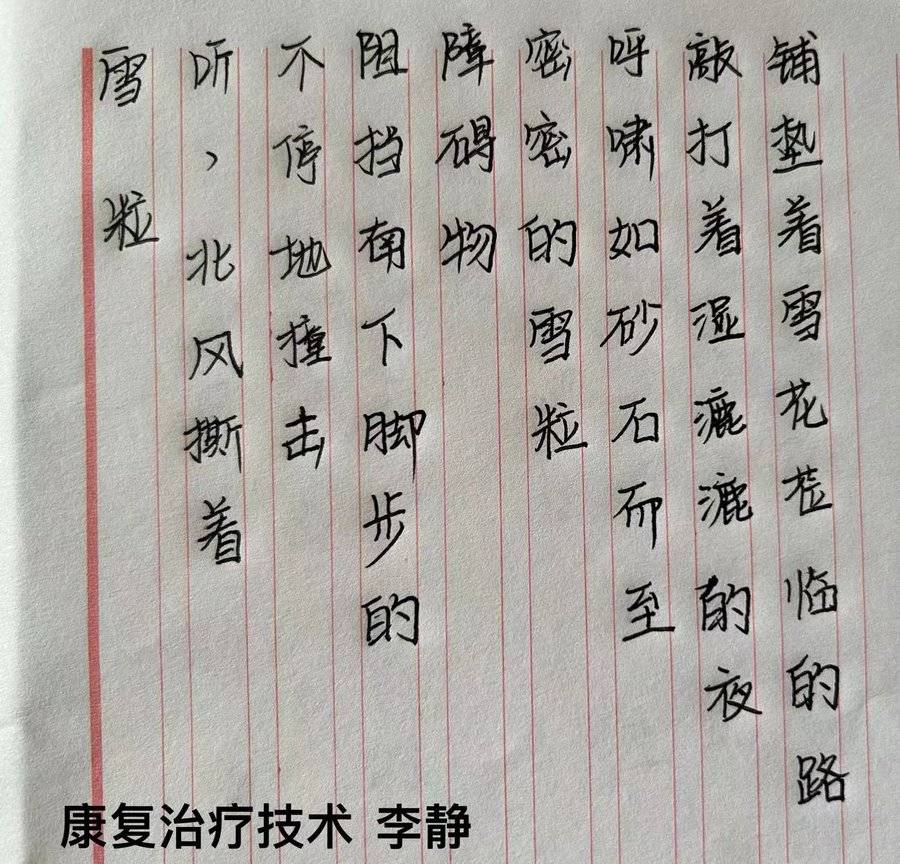 雪粒
听，北风撕着
不停地撞击
阻挡南下脚步的
障碍物
密密的雪粒
呼啸如砂石而至
敲打着湿漉漉的夜
铺垫着雪花莅临的路
康复治疗技术 李静